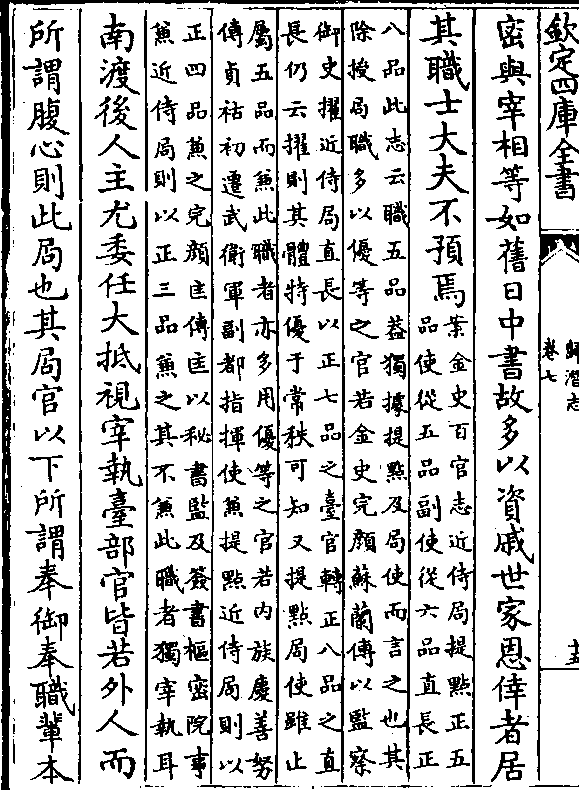 欽定四庫全書
歸潛志
卷七
十五
密與宰相等如舊日中書故多以資戚世家恩倖者居
其職士大夫不預焉案金史百官志近侍局提點正五
品使從五品副使從六品直長正
八品此志云職五品葢獨據提點及局使而言之也其
除授局職多以優等之官若金史完顔蘇蘭傳以監察
御史擢近侍局直長以正七品之臺官轉正八品之直
長仍云擢則其體特優于常秩可知又提點局使雖止
屬五品而兼此職者亦多用優等之官若内族慶善努
傳貞祐初遷武衛軍副都指揮使兼提點近侍局則以
正四品兼之完顔匡傳匡以秘書監及簽書樞密院事
兼近侍局則以正三品兼之其不兼此職者獨宰執耳
南渡後人主尤委任大抵視宰執臺部官皆若外人而
所謂腹心則此局也其局官以下所謂奉御奉職輩本